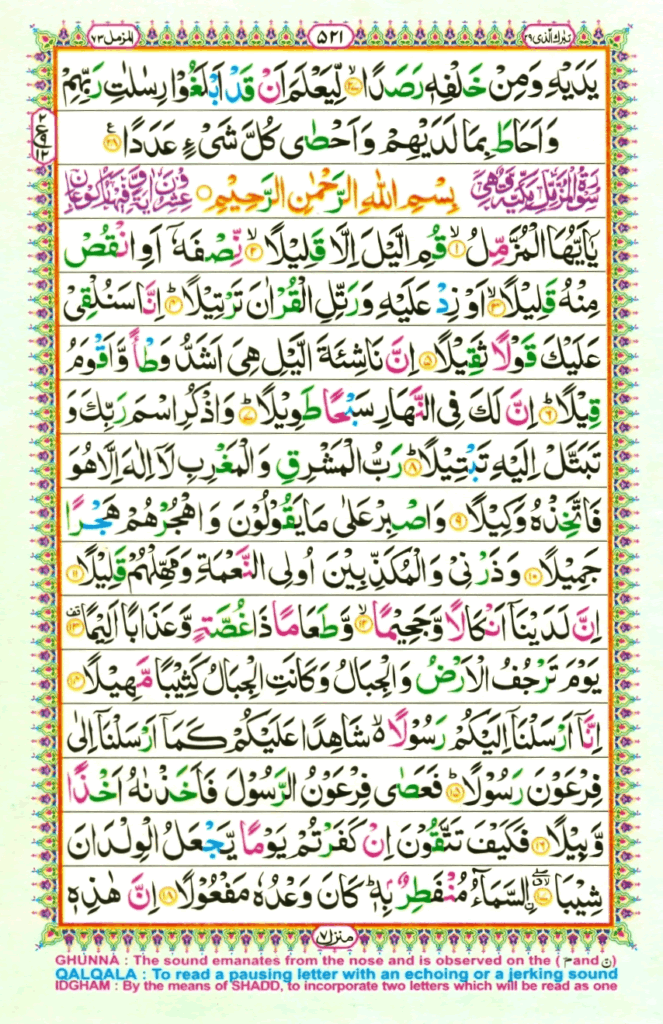 تبرك الذى ٢٩
٥٢١
المزمل ٧٣
يَدَيْهِ وَمِنْ خَلْفِهٖ رَصَدًا ۙ﴿۲۷﴾ لِّيَعْلَمَ اَنْ قَدْ اَبْلَغُوْا رِسٰلٰتِ رَبِّهِمْ
وَاَحَاطَ بِمَا لَدَيْهِمْ وَاَحْصٰى كُلَّ شَىْءٍ عَدَدًا ﴿۲۸﴾
سُوْرَةُ الْمُزَّمِّلِ مَكِّيَّةٌ وَّهِىَ
بِسْمِ اللّٰهِ الرَّحْمٰنِ الرَّحِيْمِ
عِشْرُوْنَ اٰيَةً وَّفِيْهَا رُكُوْعَانِ
يٰۤاَيُّهَا الْمُزَّمِّلُ ۙ﴿۱﴾ قُمِ الَّيْلَ اِلَّا قَلِيْلًا ۙ﴿۲﴾ نِّصْفَهٗۤ اَوِ انْقُصْ
مِنْهُ قَلِيْلًا ۙ﴿۳﴾ اَوْ زِدْ عَلَيْهِ وَرَتِّلِ الْقُرْاٰنَ تَرْتِيْلًا ؕ﴿۴﴾ اِنَّا سَنُلْقِىْ
عَلَيْكَ قَوْلًا ثَقِيْلًا ﴿۵﴾ اِنَّ نَاشِئَةَ الَّيْلِ هِىَ اَشَدُّ وَطْاً وَّاَقْوَمُ
قِيْلًا ؕ﴿۶﴾ اِنَّ لَكَ فِى النَّهَارِ سَبْحًا طَوِيْلًا ؕ﴿۷﴾ وَاذْكُرِ اسْمَ رَبِّكَ وَ
تَبَتَّلْ اِلَيْهِ تَبْتِيْلًا ؕ﴿۸﴾ رَبُّ الْمَشْرِقِ وَالْمَغْرِبِ لَاۤ اِلٰهَ اِلَّا هُوَ
فَاتَّخِذْهُ وَكِيْلًا ﴿۹﴾ وَاصْبِرْ عَلٰى مَا يَقُوْلُوْنَ وَاهْجُرْهُمْ هَجْرًا
جَمِيْلًا ﴿۱۰﴾ وَذَرْنِىْ وَالْمُكَذِّبِيْنَ اُولِى النَّعْمَةِ وَمَهِّلْهُمْ قَلِيْلًا ﴿۱۱﴾
اِنَّ لَدَيْنَاۤ اَنْكَالًا وَّجَحِيْمًا ۙ﴿۱۲﴾ وَّطَعَامًا ذَا غُصَّةٍ وَّعَذَابًا اَلِيْمًا ﴿۱۳﴾
يَوْمَ تَرْجُفُ الْاَرْضُ وَالْجِبَالُ وَكَانَتِ الْجِبَالُ كَثِيْبًا مَّهِيْلًا ﴿۱۴﴾
اِنَّاۤ اَرْسَلْنَاۤ اِلَيْكُمْ رَسُوْلًا ۙ شَاهِدًا عَلَيْكُمْ كَمَاۤ اَرْسَلْنَاۤ اِلٰى
فِرْعَوْنَ رَسُوْلًا ؕ﴿۱۵﴾ فَعَصٰى فِرْعَوْنُ الرَّسُوْلَ فَاَخَذْنٰهُ اَخْذًا
وَّبِيْلًا ﴿۱۶﴾ فَكَيْفَ تَتَّقُوْنَ اِنْ كَفَرْتُمْ يَوْمًا يَّجْعَلُ الْوِلْدَانَ
شِيْبَا ﴿۱۷﴾ اۨلسَّمَآءُ مُنْفَطِرٌۢ بِهٖ ؕ كَانَ وَعْدُهٗ مَفْعُوْلًا ﴿۱۸﴾ اِنَّ هٰذِهٖ
منزل ٧
GHUNNA : The sound emanates from the nose and is observed on the ( م and ن )
QALQALA : To read a pausing letter with an echoing or a jerking sound
IDGHAM : By the means of SHADD, to incorporate two letters which will be read as one